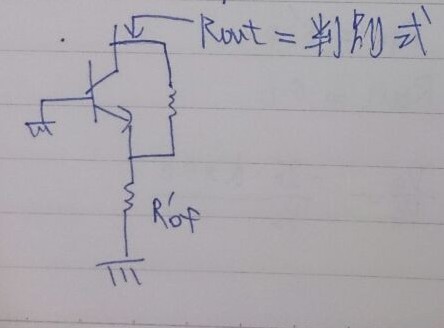 Rout = 判別式
R'of